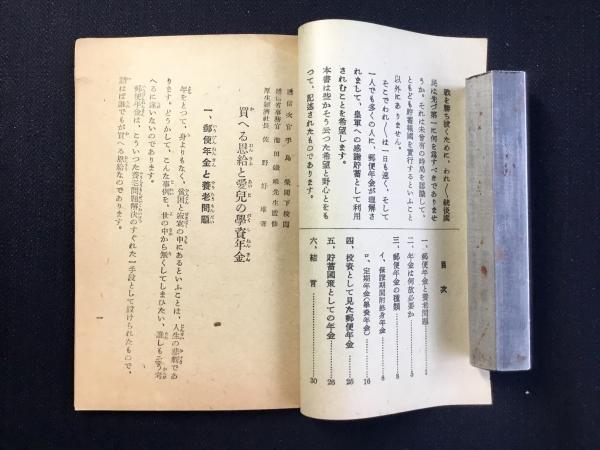 敵を勝ち抜くために、われ〳〵銃後國
民は先づ第一に何を爲すべきでありませ
うか。それは未曾有の時局を認識して、
ともども貯蓄報國を實行するといふこと
以外にありません。
そこでわれ〳〵は一日も速く、そして
一人でも多くの人に、郵便年金が理解さ
れまして、皇軍への感謝貯蓄として利用
されむことを希望します。
本書は些かさう云つた希望と野心とをも
つて、記述されたものであります。
目次
一、郵便年金と養老問題
二、年金は何故必要か……5
三、郵便年金の種類……8
イ、保證期間附終身年金……8
ロ、定期年金(學資年金)……16
四、投資として見た郵便年金……25
五、貯蓄國策としての年金……26
六、結言……30
遞信次官手島榮閣下校閲
遞信省事務官池田鐵雄先生監修
厚生經濟社長佐野好雄著
買へる恩給と愛兒の學資年金
一、郵便年金と養老問題
年をとつて、身よりもなく、貧困と寂寥の中にあるといふことは、人生の悲劇であ
ります。どうかして、こんな事例を、世の中から無くしてしまひたい、誰しもさう考
へるに違ひないのであります。
郵便年金は、かういつた養老問題解決のすぐれた一手段として設けられたもので、
謂はば誰でもが買へる恩給なのであります。
1